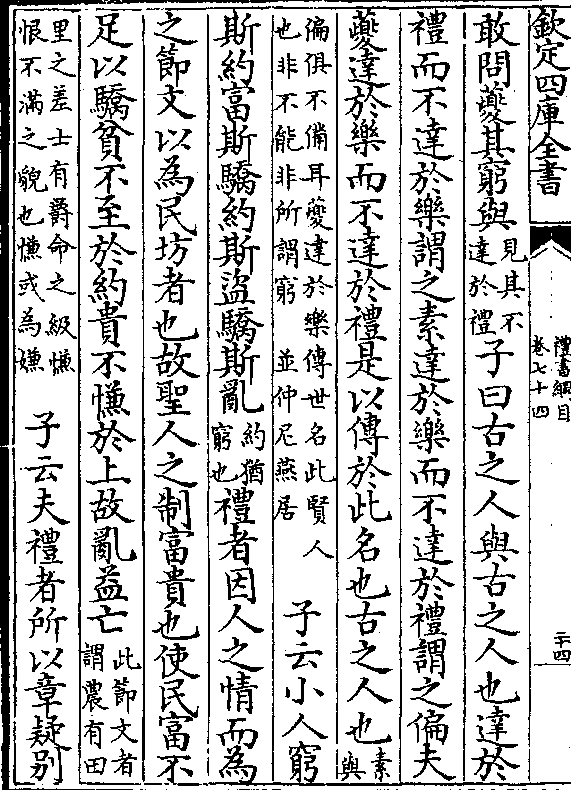 欽定四庫全書
禮書綱目
卷七十四
二十四
敢問夔其窮與見其不達於禮子曰古之人與古之人也達於
禮而不達於樂謂之素達於樂而不達於禮謂之偏夫
夔達於樂而不達於禮是以傳於此名也古之人也素與
偏俱不備耳夔達於樂傳世名此賢人也非不能非所謂窮 並仲尼燕居 子云小人窮
斯約富斯驕約斯盜驕斯亂約猶窮也禮者因人之情而為
之節文以為民坊者也故聖人之制富貴也使民富不
足以驕貧不至於約貴不慊於上故亂益亡此節文者謂農有田
里之差士有爵命之級慊恨不滿之貌也慊或為嫌 子云夫禮者所以章疑别